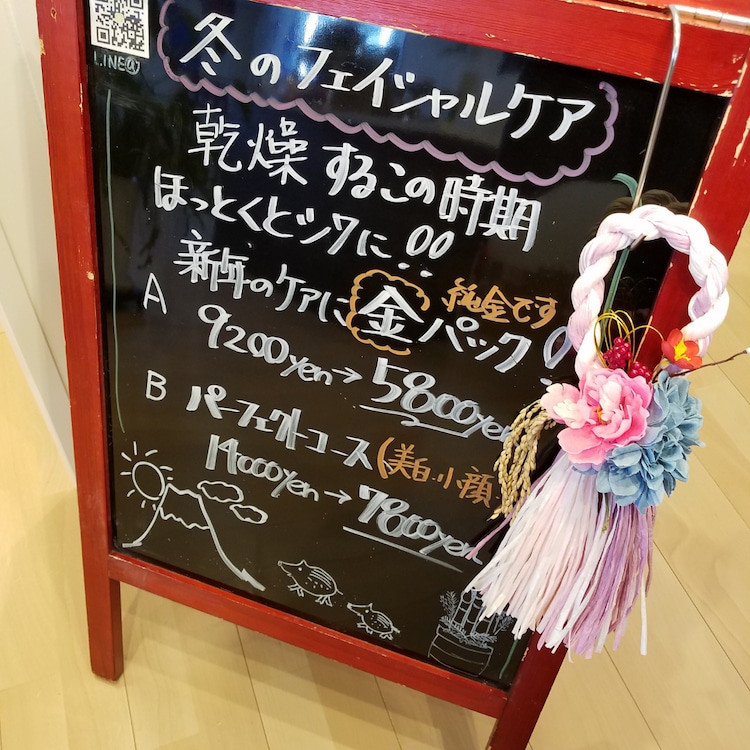 LINE@
冬のフェイシャルケア
乾燥するこの時期
ほっとくとシワに!!
A 新年のケアに金パック! 純金です
9200yen→5800yen
B パーフェクトコース(美白・小顔
14000yen→7800yen